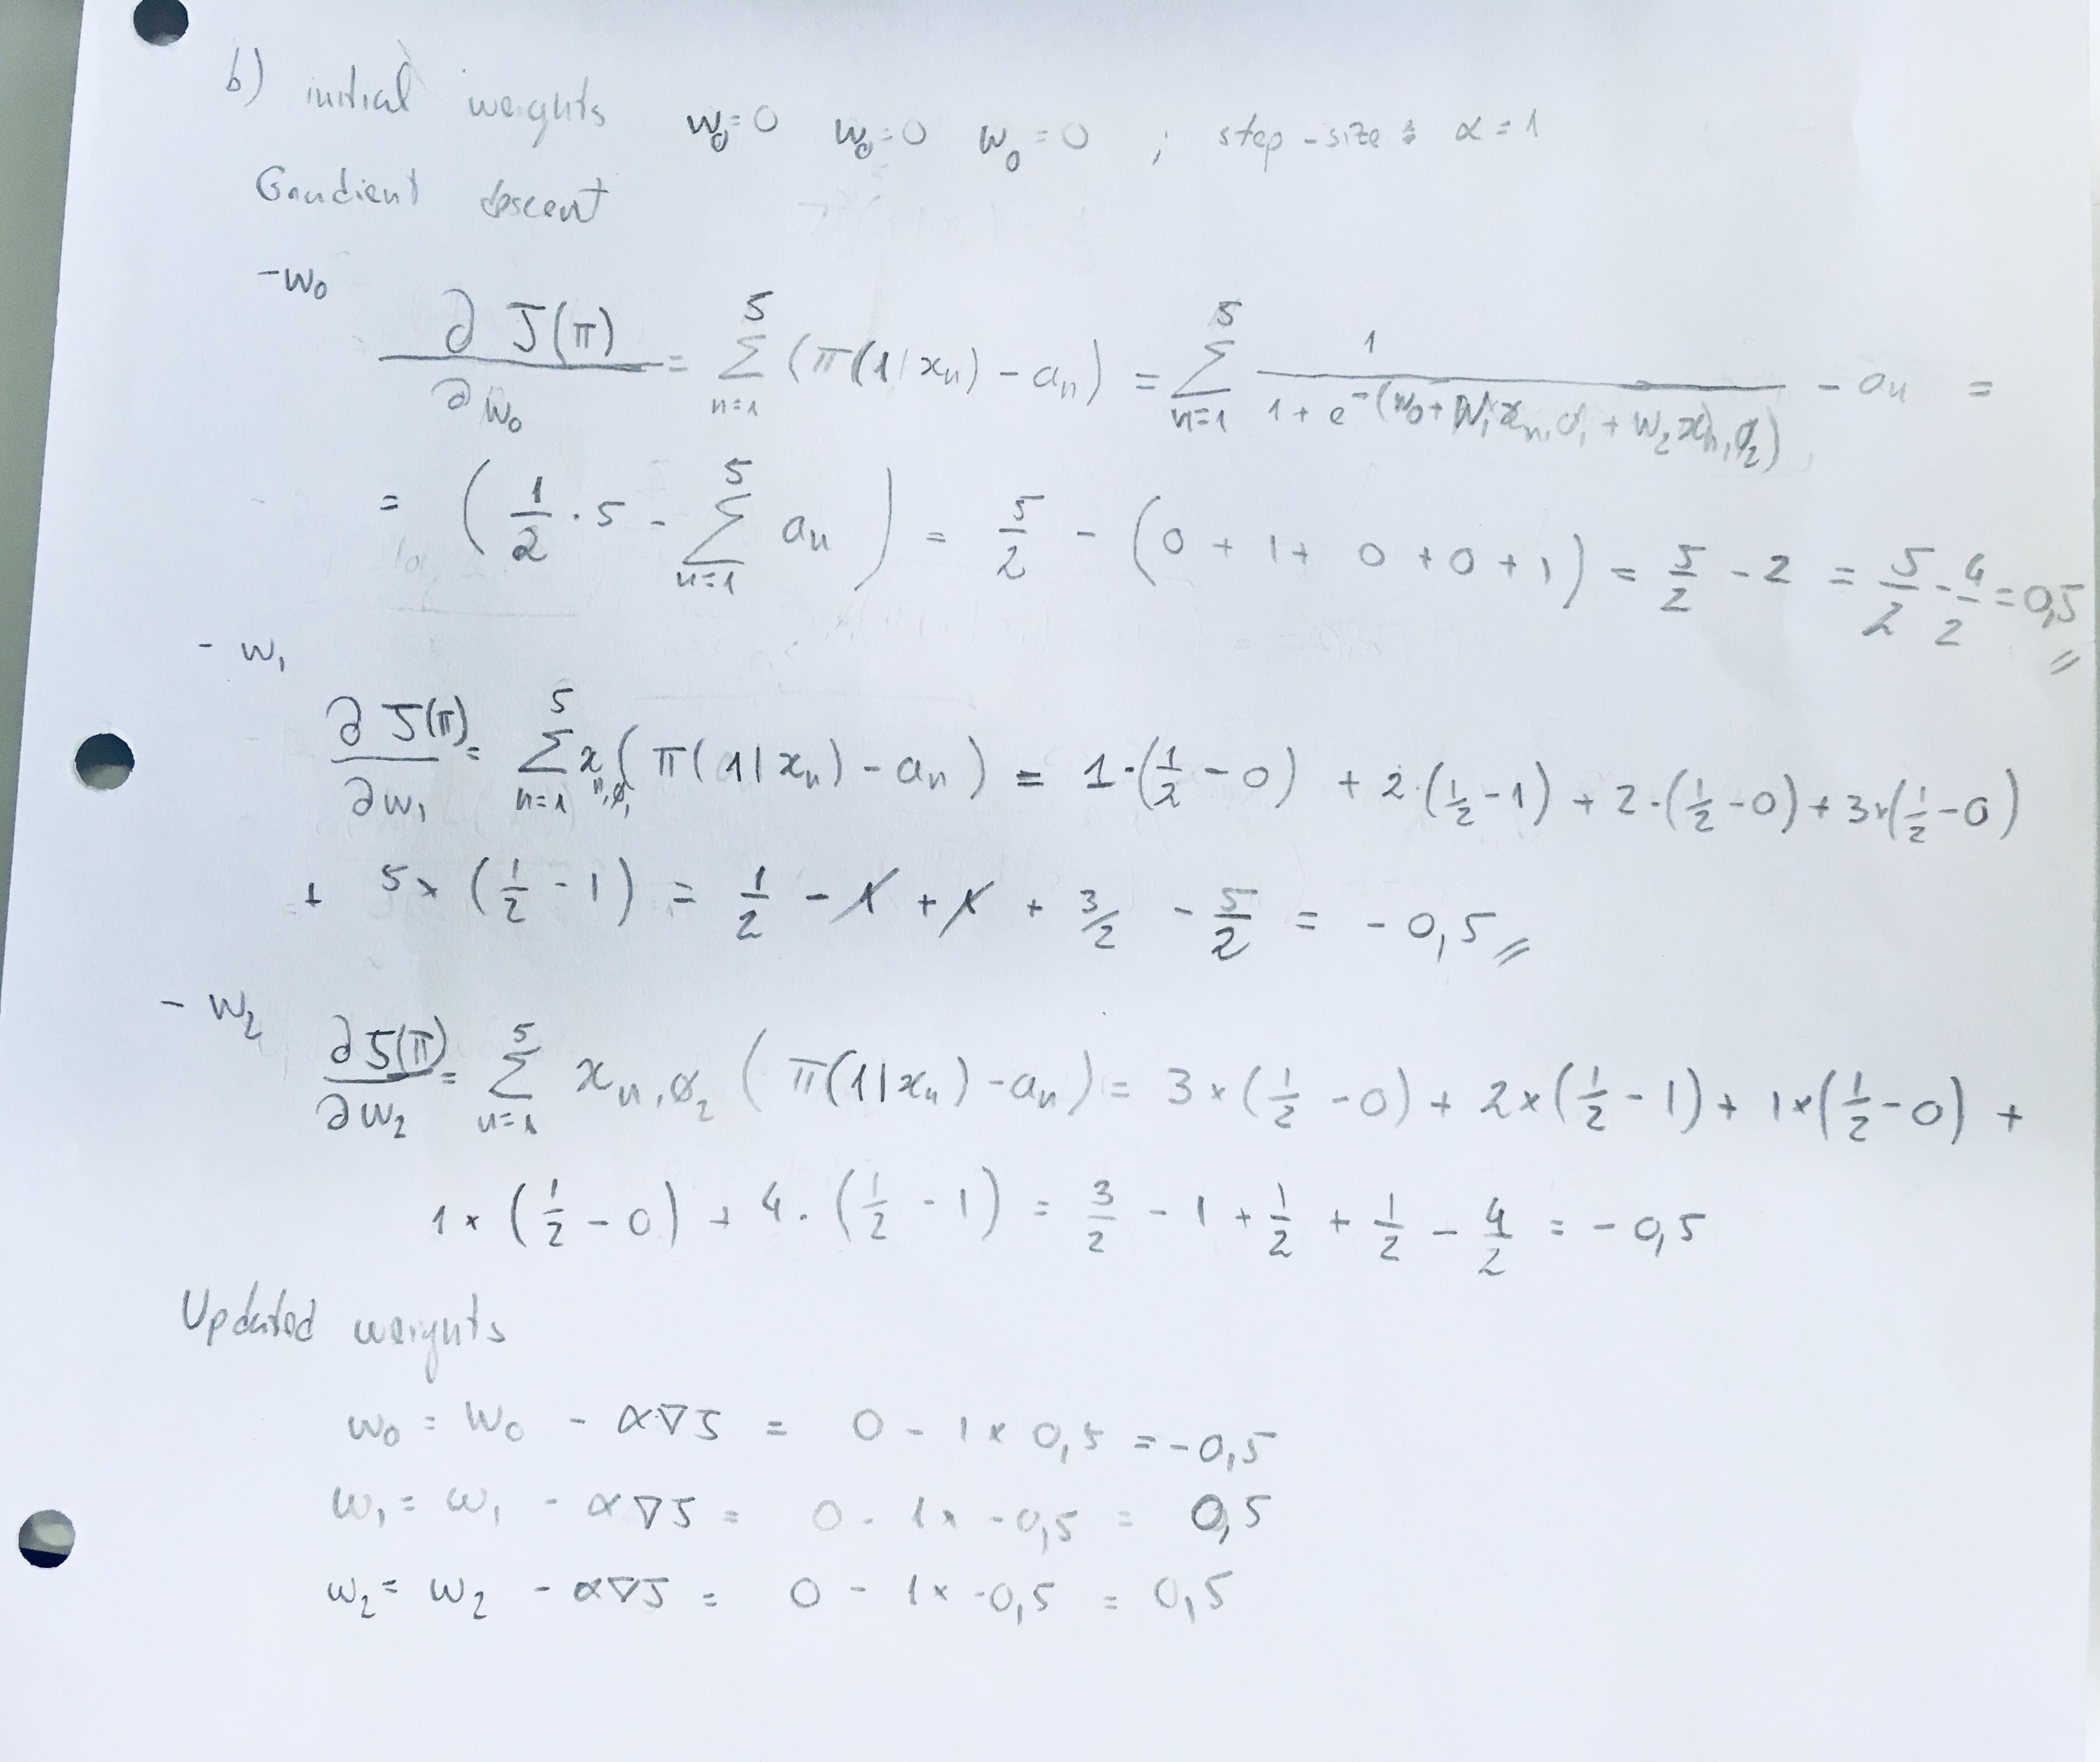 b) initial weights w₀=0 w₀=0 w₀=0 ; step-size : α=1
Gradient descent
-w₀
∂J(π)/∂w₀ = Σ_{n=1}^{5} (π(1|xₙ) - aₙ) = Σ_{n=1}^{5} 1/(1+e^{-(w₀+w₁x_{n,∅₁}+w₂x_{n,∅₂})}) - aₙ =
= (1/2 · 5 - Σ_{n=1}^{5} aₙ) = 5/2 - (0+1+0+0+1) = 5/2 - 2 = 5/2 - 4/2 = 0,5
- w₁
∂J(π)/∂w₁ = Σ_{n=1}^{5} x_{n,∅₁}(π(1|xₙ) - aₙ) = 1·(1/2 - 0) + 2·(1/2 - 1) + 2·(1/2 - 0) + 3×(1/2 - 0)
+ 5×(1/2 - 1) = 1/2 - 1 + 1 + 3/2 - 5/2 = -0,5
- w₂
∂J(π)/∂w₂ = Σ_{n=1}^{5} x_{n,∅₂}(π(1|xₙ) - aₙ) = 3×(1/2 - 0) + 2×(1/2 - 1) + 1×(1/2 - 0) +
1×(1/2 - 0) + 4·(1/2 - 1) = 3/2 - 1 + 1/2 + 1/2 - 4/2 = -0,5
Updated weights
w₀ = w₀ - α∇J = 0 - 1×0,5 = -0,5
w₁ = w₁ - α∇J = 0 - 1× -0,5 = 0,5
w₂ = w₂ - α∇J = 0 - 1× -0,5 = 0,5